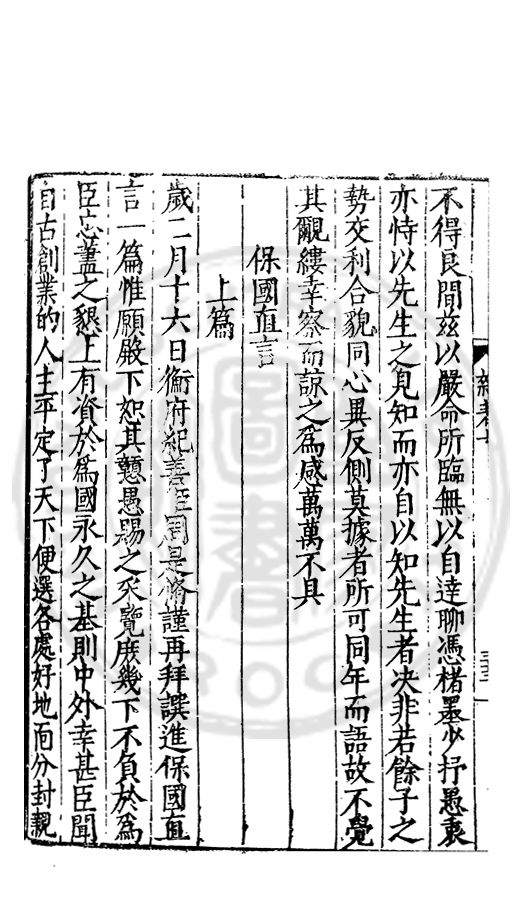 不得良間茲以嚴命所臨無以自達聊憑楮墨少抒愚衷
亦恃以先生之見知而亦自以知先生者决非若餘子之
勢交利合貌同心異反側莫據者所可同年而語故不覺
其覼縷幸察而諒之爲感萬萬不具
保國直言
上篇
歲二月十六日衡府紀善臣周是脩謹再拜譔進保國直
言一篇惟願殿下恕其戇愚賜之采覽庶幾下不負於爲
臣忠藎之懇上有資於爲國永久之基則中外幸甚臣聞
自古創業的人主平定了天下便選各處好地面分封親